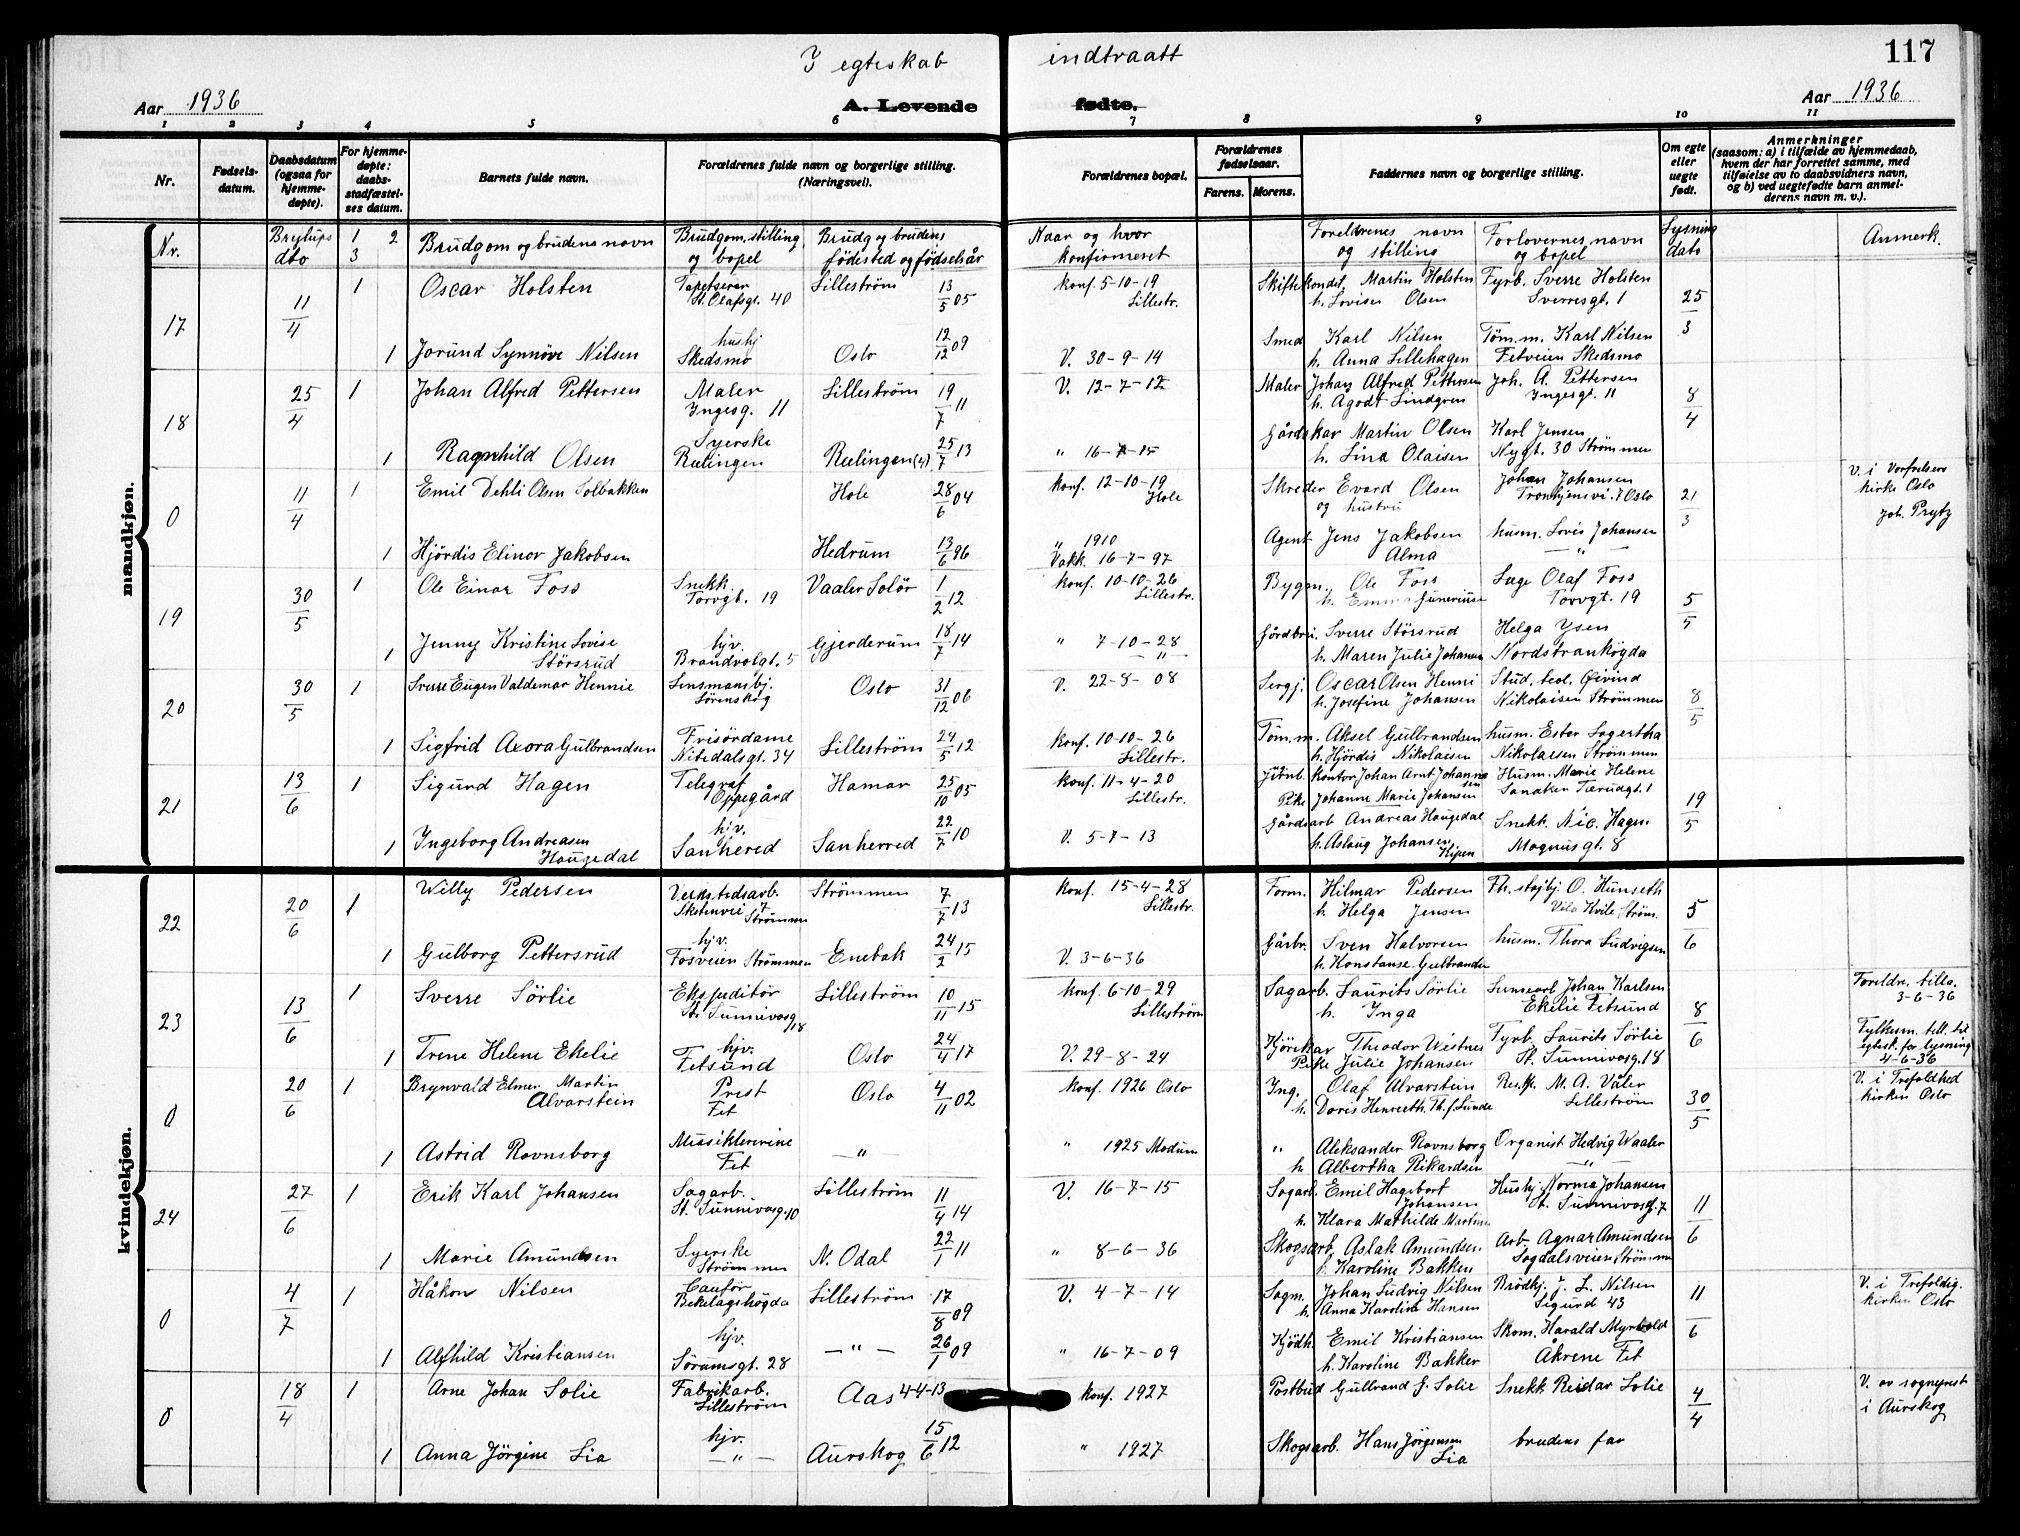 I egteskab indtraatt
117
Aar 1936
A. Levende fødte.
Aar 1936
1 2 3 4 5 6 7 8 9 10 11
Nr.
Fødsels-datum.
Daabsdatum (ogsaa for hjemme-døpte).
For hjemme-døpte: daabs-stadfæstel-ses datum.
Barnets fulde navn.
Forældrenes fulde navn og borgerlige stilling. (Næringsvei).
Forældrenes bopæl.
Forældrenes fødselsaar.
Farens. Morens.
Faddernes navn og borgerlige stilling.
Om egte eller uegte født.
Anmerkninger
(saasom: a) i tilfælde av hjemmedaab, hvem der har forrettet samme, med tilføielse av to daabsvidners navn, og b) ved uegtefødte barn anmel-derens navn m. v.).
mandkjøn.
kvindekjøn.
Nr. Brylups dto 1 2 3 Brudgom og brudens navn Brudgom, stilling og bopel Brudg og brudens fødested og fødselsår Naar og hvor konfirmeret Foreldrenes navn og stilling Forlovernes navn og bopel Lysning dato Anmerk.
17 11/4 1 Oscar Holsten Tapetserer St. Olafsgt. 40 Lilleström 13/5 05 konf. 5-10-19 Lillestr. Martin Holsten h. Lovise Olsen Fyrb. Sverre Holsten Sverresgt. 1 25/3
1 Jorund Synnöve Nilsen hushj Skedsmo Oslo 12/12 09 V. 30-9-14 Smed Karl Nilsen h. Anna Lillehagen Töm.m. Karl Nilsen Fetveien Skedsmo
18 25/4 1 Johan Alfred Pettersen Maler Ingesg. 11 Lilleström 19/7 11 V. 12-7-12 Maler Johan Alfred Pettersen h. Agodt Lindgren Joh. A. Pettersen Ingesgt. 11 8/4
1 Ragnhild Olsen Syerske Rælingen Rælingen 25/7 13 " 16-7-15 Martin Olsen h. Lina Olaisen Karl Jensen Nygt. 30 Strömmen
0 11/4 1 Emil Dehli Olsen Solbakken Hole 28/6 04 konf. 12-10-19 Hole Skreder Evard Olsen og hustru Johan Johansen Oslo 21/3 V. i Vorfrelsers kirke Oslo Joh. Prytz
1 Hjördis Elinor Jakobsen Hedrum 13/6 96 " 1910 Vakk. 16-7-97 Agent Jens Jakobsen Alma husm. Lovis Johansen — " —
19 30/5 1 Ole Einar Foss Snekk. Torvgt. 19 Vaaler Solör 1/2 12 konf. 10-10-26 Lillestr. Bygm. Ole Foss h. Emma Olaf Foss Torvgt. 19 5/5
1 Jenny Kristine Lovise Störsrud hjv. Brandvolgt. 5 Gjerderum 18/7 14 " 7-10-28 — " — Sverre Störsrud h. Maren Julie Johansen Helga Ysen
20 30/5 1 Sverre Eugen Valdemar Hennie Lensmansbj. Lörenskog Oslo 31/12 06 V. 22-8-08 Sergj. Oscar Olsen Henni h. Josefine Johansen Stud. teol. Öivind Nikolaisen Strömmen 8/5
1 Sigfrid Axora Gulbrandsen Frisördame Nitedalsgt. 34 Lilleström 24/5 12 konf. 10-10-26 Lillestr. Töm.m. Aksel Gulbrandsen h. Hjördis Nikolaisen husm. Ester Nikolaisen Strömmen
21 13/6 1 Sigurd Hagen Telegraf Oppegård Hamar 25/10 05 konf. 11-4-20 Lillestr. Johan Arnt Johannessen Pike Johanne Marie Johansen Husm. Marie Helene Sanaker Tærudgt. 1 19/5
1 Ingeborg Andreasen Haugedal hjv. Sanherred Sanherred 22/7 10 V. 5-7-13 Gårdsarb Andreas Haugedal h. Aslaug Johansen Snekk. Nic. Hagen Magnusgt. 8
22 20/6 1 Willy Pedersen Verkstedsarb. Strömmen Strömmen 7/7 13 konf. 15-4-28 Lillestr. Form. Hilmar Pedersen h. Helga Jensen O. Hunseth Vila Kvile Ström. 5/6
1 Gulborg Pettersrud hjv. Fosveien Strömmen Enebak 24/2 15 V. 3-6-36 Gårbr. Sven Halvorsen h. Konstanse Gulbrandsen husm. Thora Ludvigsen
23 13/6 1 Sverre Sörlie Ekspeditör St. Sunnivasg 18 Lilleström 10/11 15 konf. 6-10-29 Lilleström Sagarb. Laurits Sörlie h. Inga Johan Karlsen Ekelie Fetsund 8/6 Foreldr. tilla. 3-6-36
1 Trene Helene Ekelie hjv. Fetsund Oslo 24/4 17 V. 29-8-24 Kjörekar Theodor Westnes Pike Julie Johansen Fyrb. Laurits Sörlie St. Sunnivasg. 18 Fylkesm. till. til egtesk. før lysning 4-6-36
0 20/6 1 Brynvald Elmer Martin Alvarstein Prest Fet Oslo 4/11 02 konf. 1926 Oslo Ing. Olaf Alvarstein h. Doris Res.kp. M. A. Våler Lilleström 30/5 V. i Trefoldhed kirken Oslo
1 Astrid Ravnsborg Musiklererine Fet — " — " 1925 Modum " Aleksander Ravnsborg h. Albertha Rikardsen Organist Hedvig Waaler — " —
24 27/6 1 Erik Karl Johansen Sagarb. St. Sunnivasg. 10 Lilleström 11/4 14 V. 16-7-15 Sagarb. Emil Hagebart Johansen h. Klara Mathilde Martins Hushj. Norma Johansen St. Sunnivasg. 7 11/6
1 Marie Amundsen Syerske Strömmen N. Odal 22/1 11 " 8-6-36 Skogsarb. Aslak Amundsen. h. Karoline Bakken Arb. Agnar Amundsen Sagdalsveien Strömmen
0 4/7 1 Håkon Nilsen Bekelagshögda Lilleström 17/8 09 V. 4-7-14 Sagm. Johan Ludvig Nilsen h. Anna Karoline Hansen Brödkj. J. L. Nilsen Sigurd 43 11/6 V. i Trefoldig. kirken Oslo
1 Alfhild Kristiansen hjv. Sörumsgt. 28 — " — 26/1 09 " 16-7-09 Kjödh. Emil Kristiansen h. Karoline Bakker Skom. Harald Myrvold Åkrene Fet
0 18/4 1 Arne Johan Solie Fabrikarb. Lilleström Aas 4-4-13 konf. 1927 Postbud Gulbrand J. Solie Snekk Reidar Solie 4/4 V. av sogneprst i Aurskog
1 Anna Jörgine Lia hjv. — " — Aurskog 15/6 12 " 1927 Skogsarb. Hans Jörgensen Lia brudens far